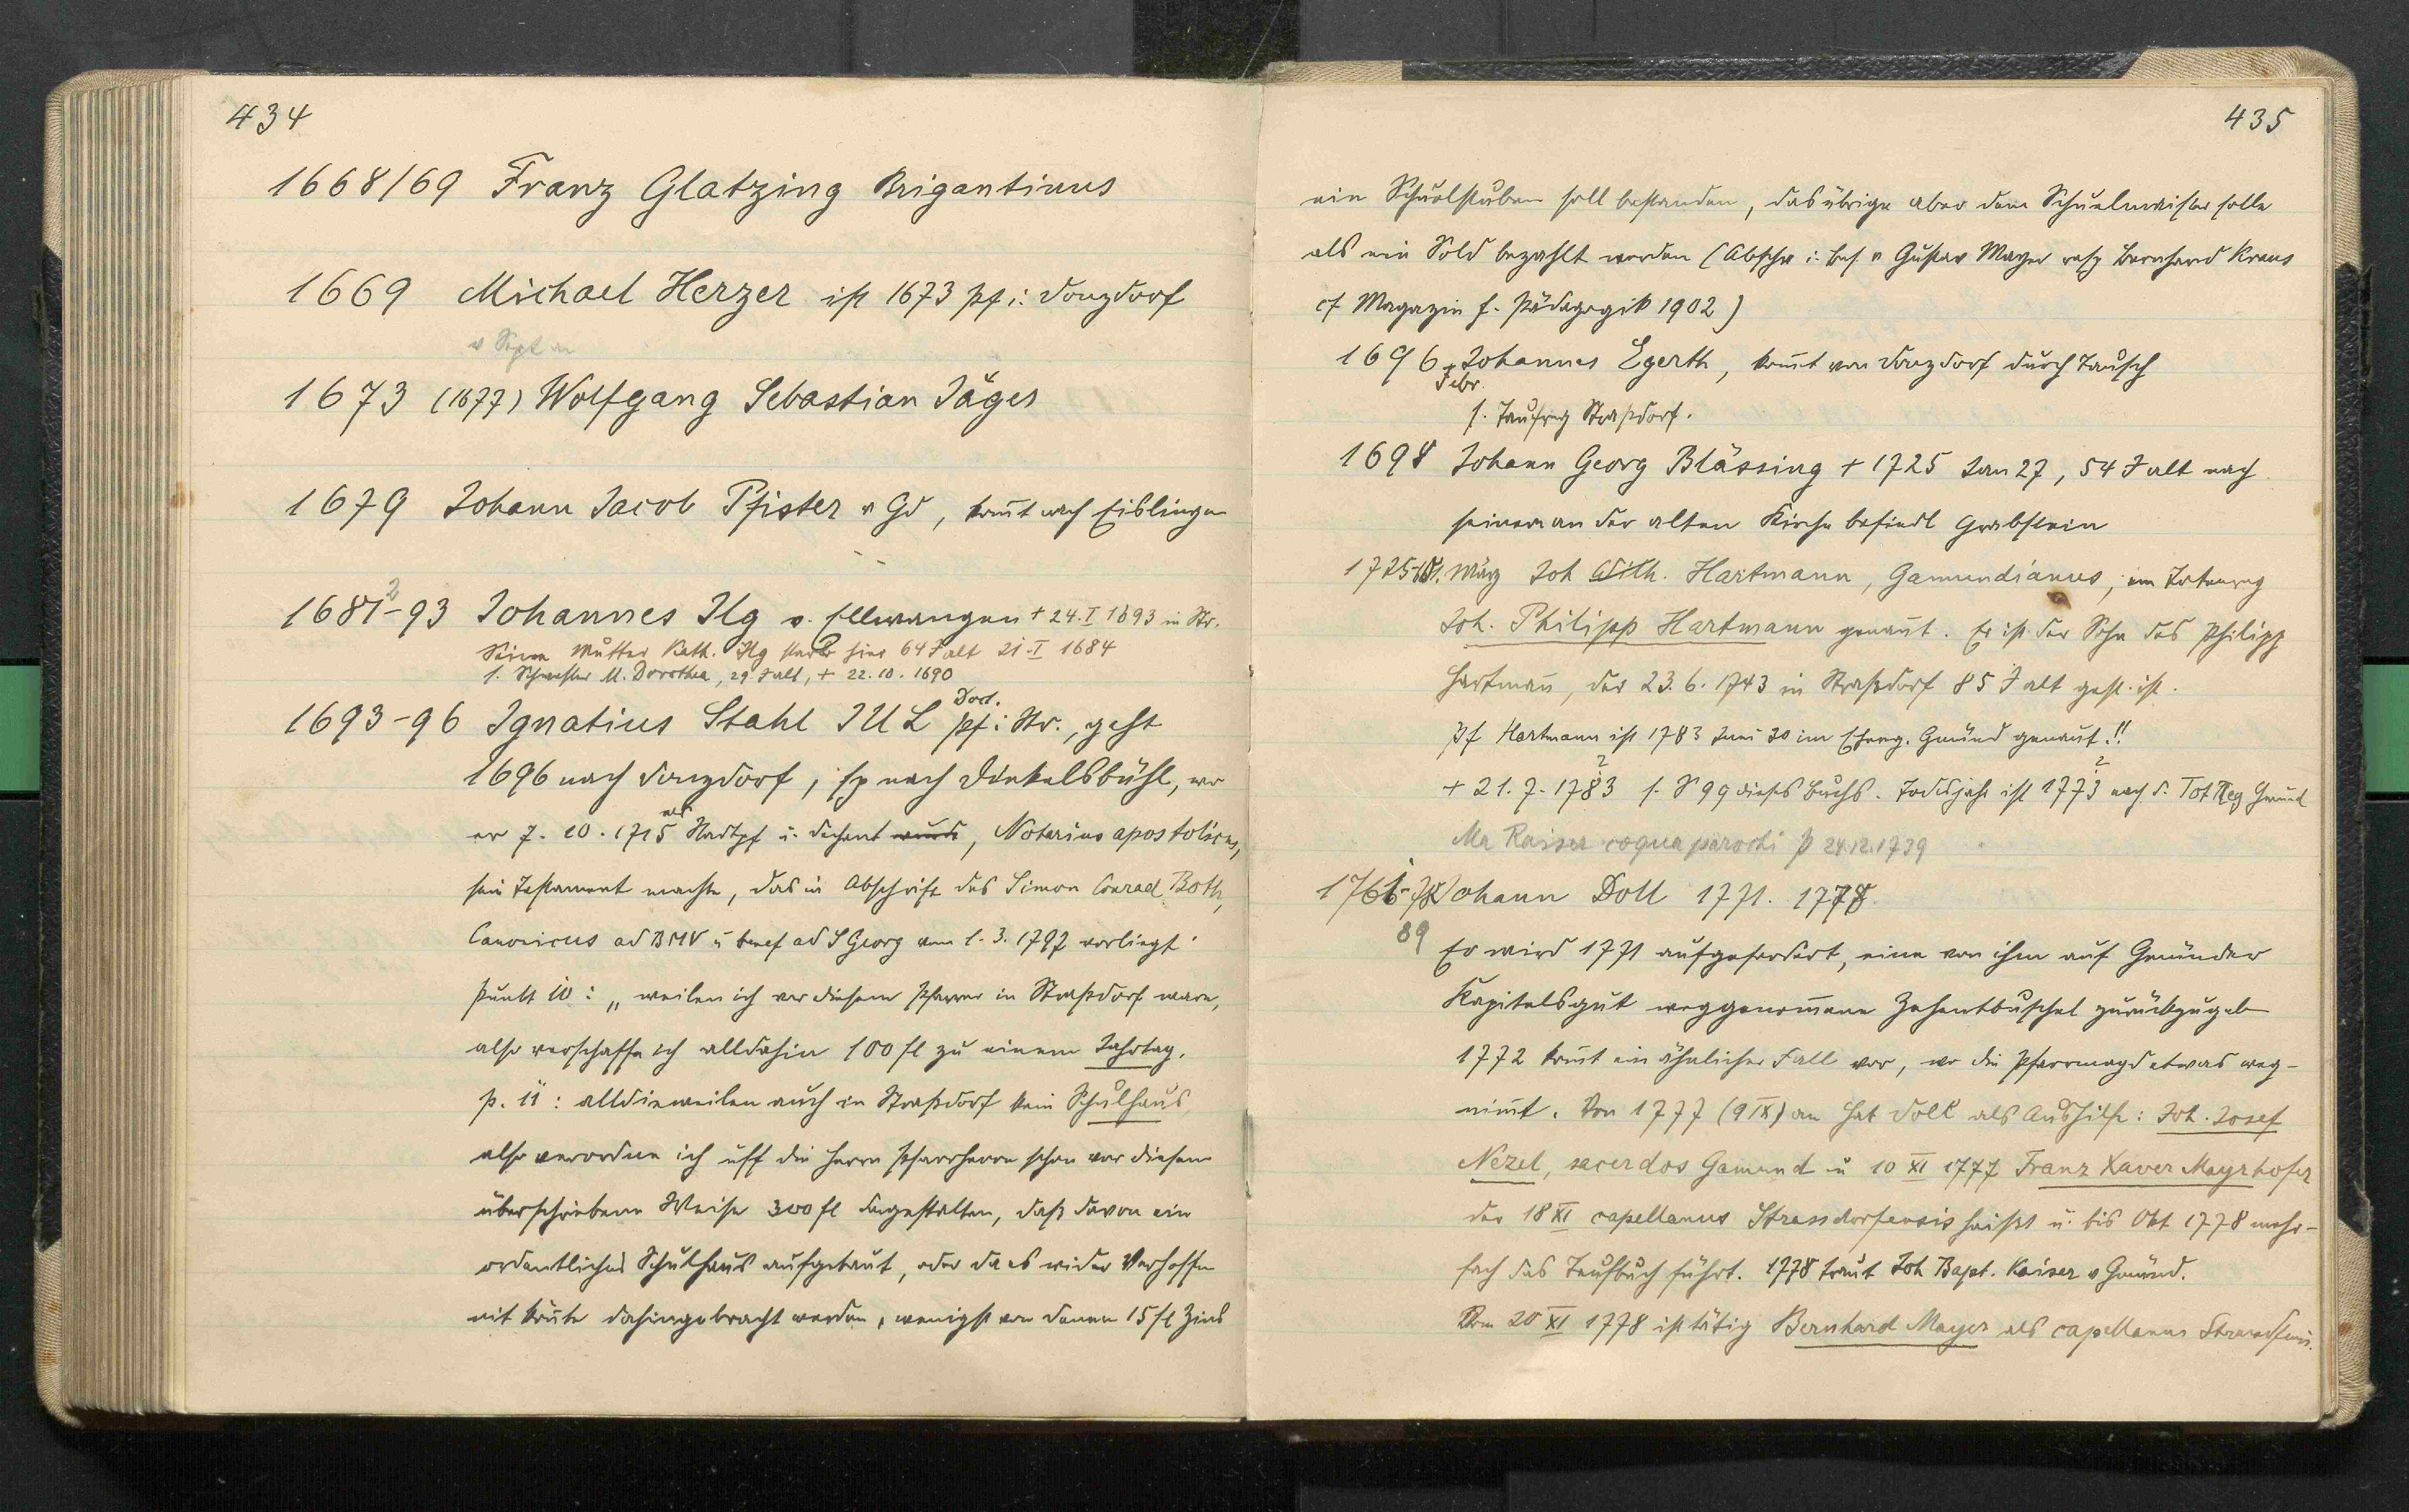 434
1668/69 Franz Glatzing Brigantinus
1669 Michael Herzer ist 1673 pf i. Donzdorf
v Sept an
1673 (1677) Wolfgang Sebastian Jäger
1679 Johann Jacob Pfister v Gd, komt nach Eislingen
2
1681-93 Johannes Ilg v. Ellwangen + 24. I 1693 in Str.
Seine Mutter Kath. Ilg starb hier 64 J alt 21. I 1684
s. Schwester M. Dorothea, 29 J alt, + 22. 10. 1690
Doct.
1693-96 Ignatius Stahl IUL pf i. Str., geht
1696 nach Donzdorf, sp nach Dinkelsbühl, wo
als
er 7. 10. 1715 Stadtpf u. Dechent wurde, Notarius apostolicus,
sein Testament machte, das in Abschrift des Simon Conrad Both,
Canonicus ad BMV u benef ad S Georg vom 1. 3. 1797 vorliegt.
Punkt 10: „weilen ich vor diesem Pfarrer in Straßdorf ware,
also verschaffe ich alldahin 100 fl zu einem Jahrtag.
p. 11: alldieweilen auch in Straßdorf kein Schulhaus
also verordne ich uff die Herrn Pfarrherrn schon vor diesem
überschriebene Weise 300 fl dergestalten, daß davon ein
ordentliches Schulhaus aufgebaut, oder da es wider Verhoffen
nit könte dahingebracht werden, wenigst von denen 15 fl Zins
435
ein Schuelstuben soll bestanden, das übrige aber dem Schuelmeister solle
als ein Sold bezahlt werden (Abschr i. Bes. v Gustav Mayer resp Bernhard Kraus
cf Magazin f. Pädagogik 1902)
1696 Johannes Egerth, komt von Donzdorf durch Tausch
Febr.
s. Taufreg Straßdorf.
1698 Johann Georg Blässing + 1725 Jan 27, 54 J alt nach
seinem an der alten Kirche befindl Grabstein
1725 März Joh Wilh. Hartmann, Gamundianus, im Totenreg
Joh. Philipp Hartmann genannt. Er ist der Sohn des Philipp
Hartmann, der 23. 6. 1743 in Straßdorf 85 J alt gest. ist.
Pf Hartmann ist 1783 Juni 30 im Ehereg. Gmünd genannt!!
2 2
+ 21. 7. 1783 s. S 99 dieses Buchs. Todesjahr ist 1773 nach d. Tot Reg Gmünd
Ma Kaiser coqua parochi + 24.12.1739
1761-78 Johann Doll 1771. 1778.
89
Er wird 1771 aufgefordert, eine von ihm auf Gmünder
Kapitelsgut weggenommene Zehentbuschel zurückzugeben
1772 komt ein ähnlicher Fall vor, wo die Pfarrmagd etwas weg-
nimt. Von 1777 (9 IX) an hat Doll als Aushilfe: Joh. Josef
Nezel, sacerdos Gamund u 10 XI 1777 Franz Xaver Mayrhofer
der 18 XI capellanus Strassdorfensis heißt u. bis Okt 1778 mehr-
fach das Taufbuch führt. 1778 traut Joh Bapt. Kaiser v Gmünd.
Vom 20 XI 1778 ist tätig Bernhard Mayer als capellanus